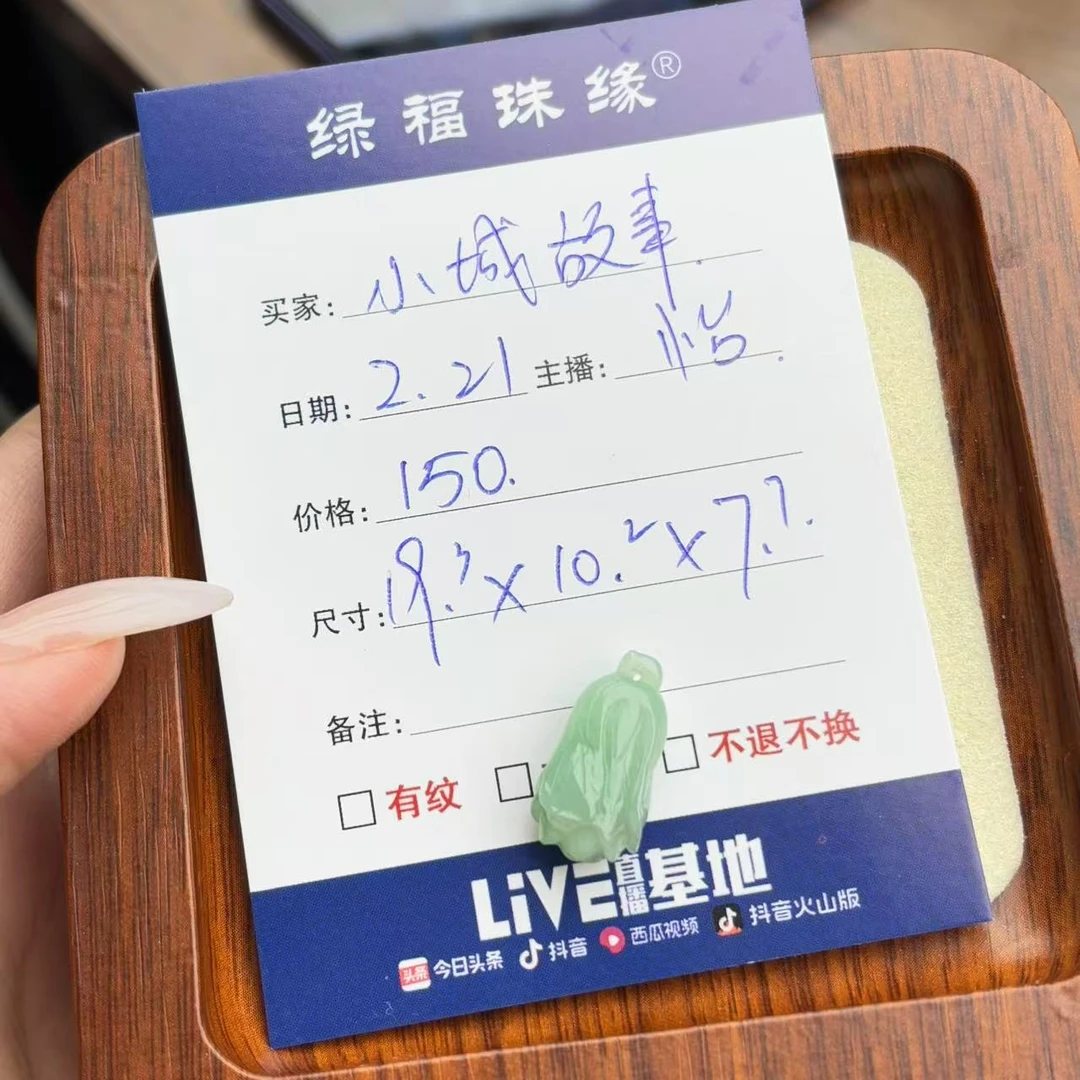 绿福珠缘®
买家: 小城故事.
日期: 2.21 主播: 怡.
价格: 150.
尺寸: 19.3×10.2×7.7.
备注:
□有纹 □ □不退不换
LiVE直播基地
头条 今日头条 抖音 西瓜视频 抖音火山版